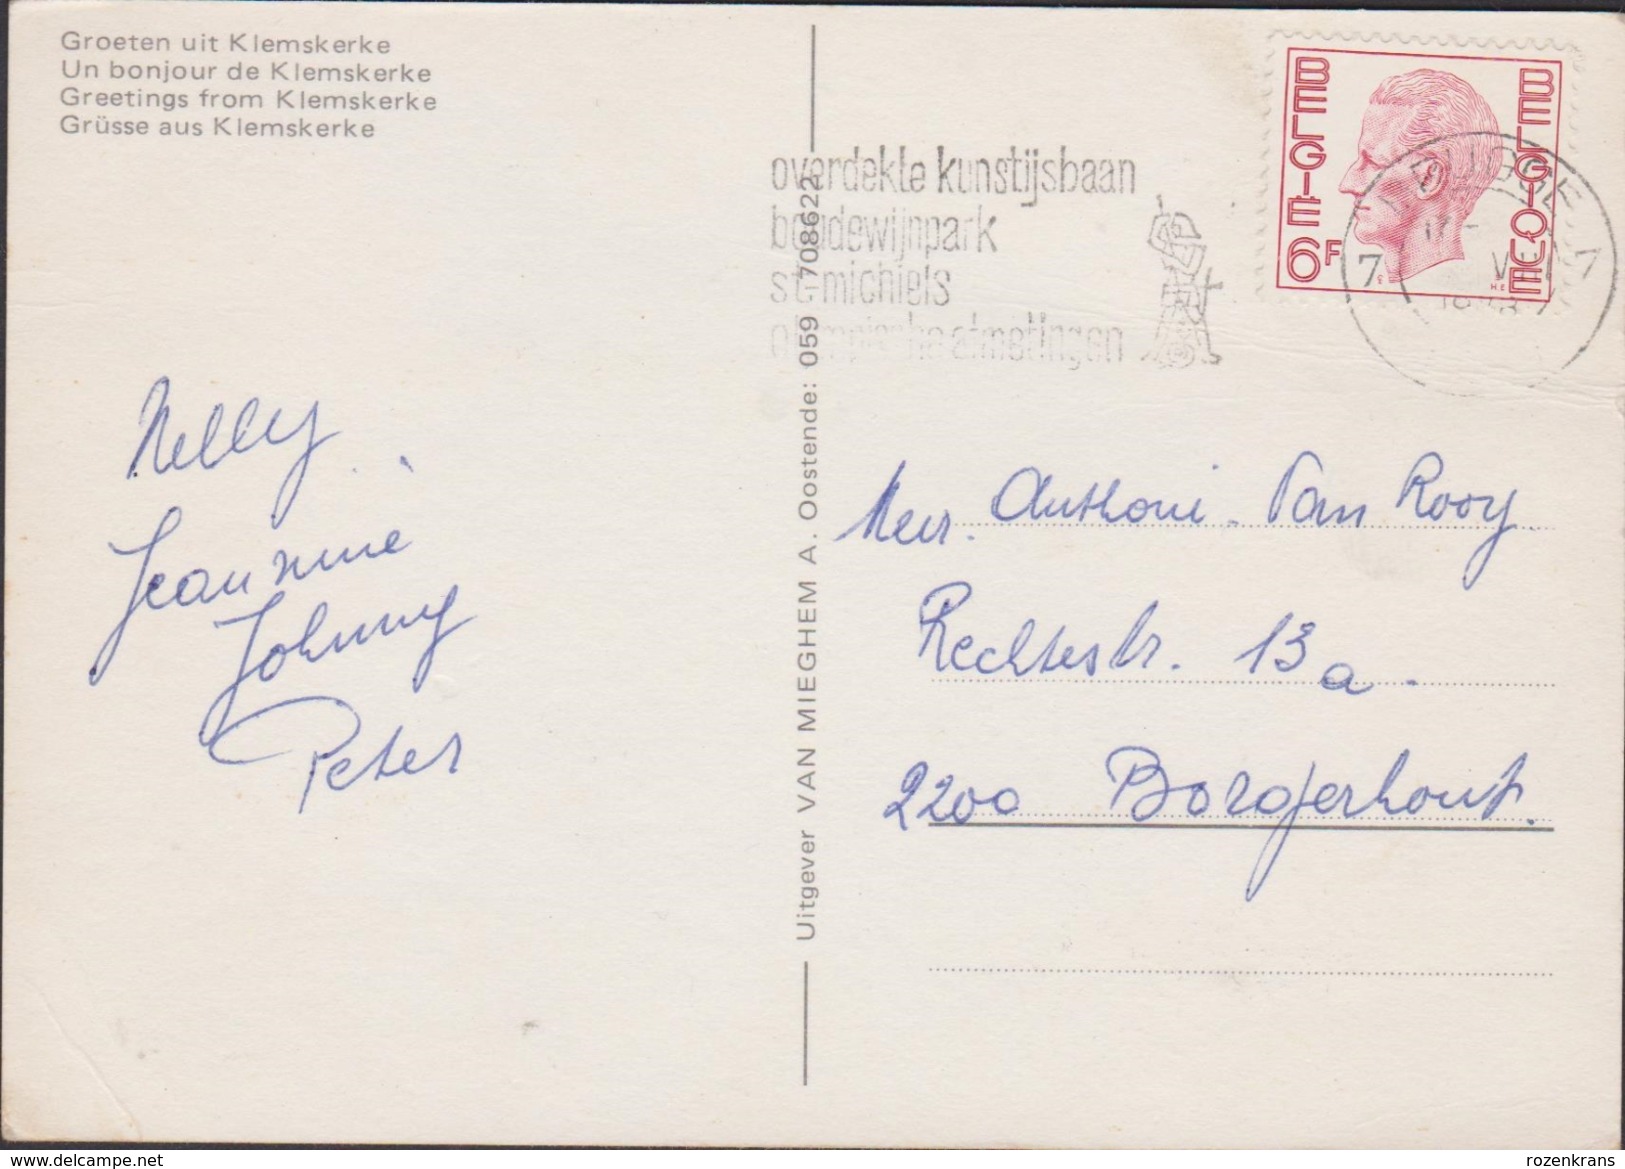 Groeten uit Klemskerke
Un bonjour de Klemskerke
Greetings from Klemskerke
Grüsse aus Klemskerke
BELGIË
BELGIQUE
6F
overdekte kunstijsbaan
boudewijnpark
st. michiels
olympische afmetingen
BRUGGE
7
Nelly
Jeannine
Johnny
Peter
Uitgever VAN MIEGHEM A. Oostende: 059 - 708622
Anthoni Van Rooy
Rechtestr. 13a.
2200 Borgerhout.
delcampe.net
rozenkrans